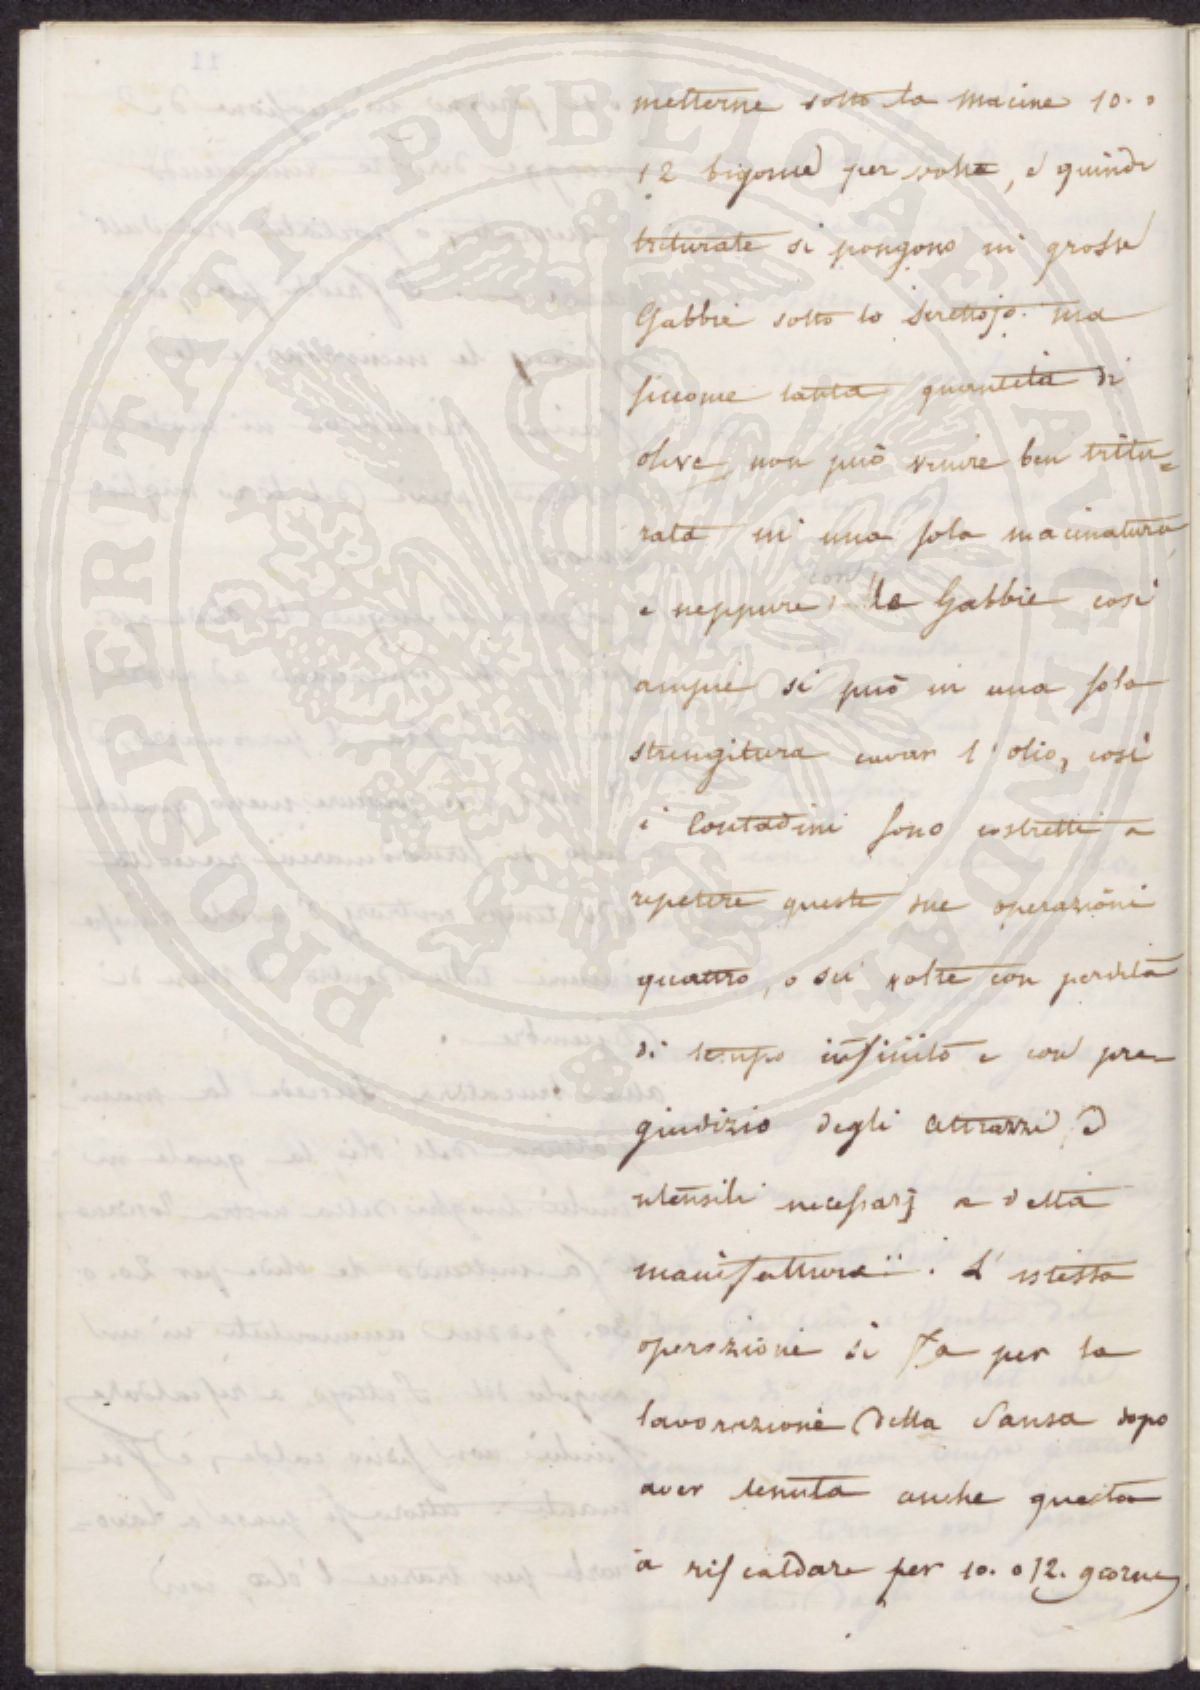 metterne sotto la macine 10. o
12 bigonce per volta, e quindi
triturate si pongono in grosse
Gabbie sotto lo Strettojo. ma
siccome tanta quantità di
olive, non può venire ben tritu=
rata in una sola macinatura,
e neppure con le Gabbie così
ampie, si può in una sola
stringitura cavar l'olio, così
i Contadini sono costretti a
repetere queste sue operazioni
quattro, o sei volte con perdita
di tempo infinito e con pre=
giudizio degli attrazzi, e
utensili necessarj a detta
manifattura. L'istessa
operazione si fa per la
lavorazione della Sansa dopo
aver tenuta anche questa
a riscaldare per 10. o 12. giorni
PROSPERITATI PVBLICAE AVGENDAE